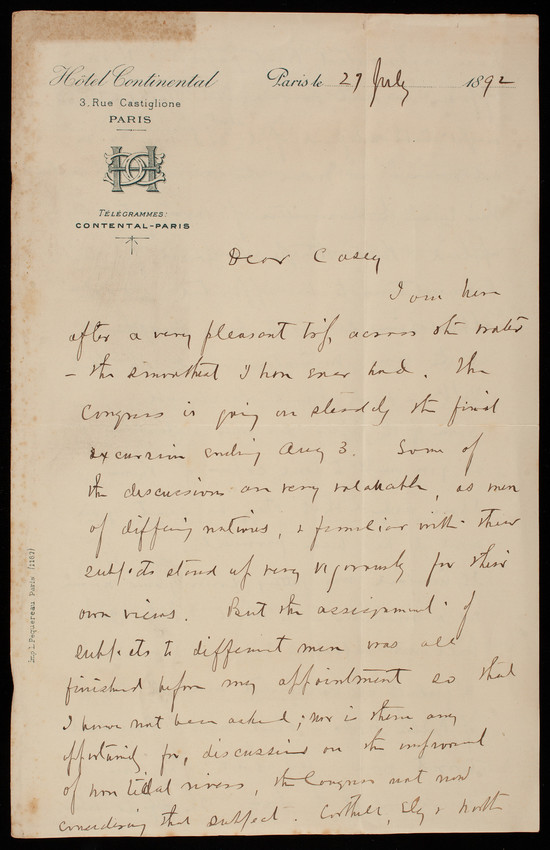 Hôtel Continental
3. Rue Castiglione
PARIS
TÉLÉGRAMMES:
CONTENTAL-PARIS
Paris le 27 July 1892
Dear Casey
I am here
after a very pleasant trip across the water
- the smoothest I have ever had. The
Congress is going on steadily the final
excursion ending Aug 3. Some of
the discussions are very valuable, as men
of differing nations, & familiar with their
subjects stand up very vigorously for their
own views. But the assignment of
subjects to different men was all
finished before my appointment so that
I have not been asked; nor is there any
opportunity for, discussion on the improvement
of non tidal rivers, the Congress not now
considering that subject. Corthell, & North
Imp. L. Paquereau Paris